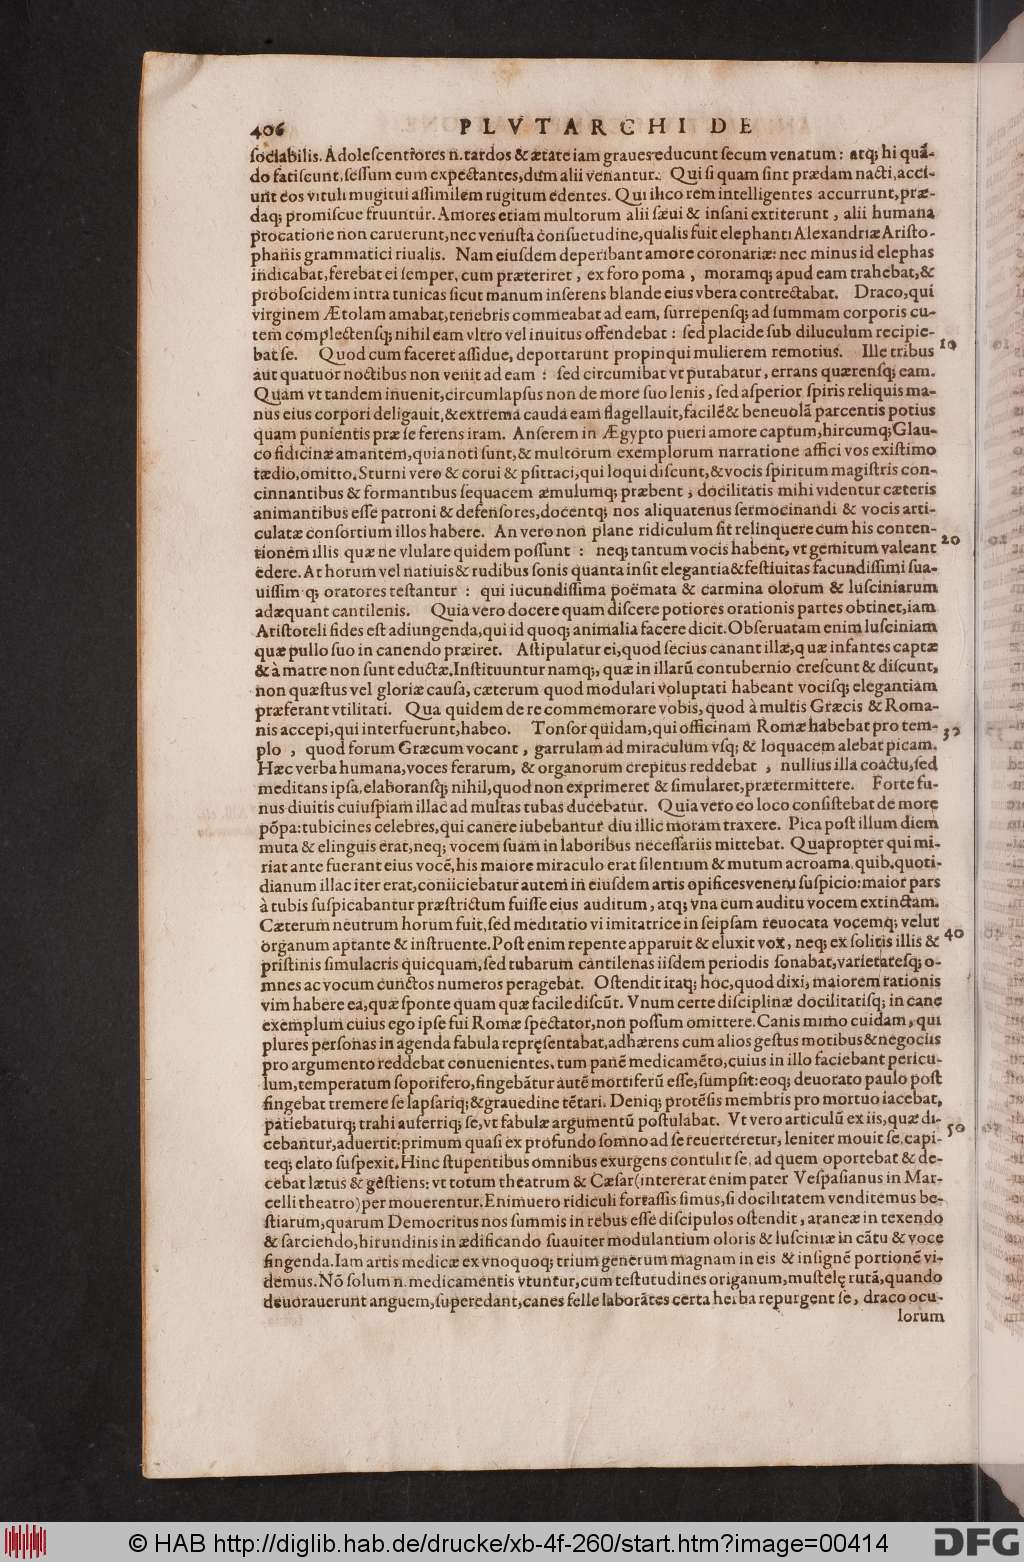 406 PLVTARCHI DE
ſociabilis. Adoleſcentiores n. tardos & ætate iam graues educunt ſecum venatum: atq; hi quã-
do fatiſcunt, ſeſſum eum expectantes, dum alii venantur. Qui ſi quam ſint prædam nacti, acci-
unt eos vituli mugitui aſſimilem rugitum edentes. Qui ilico rem intelligentes accurrunt, præ-
daq; promiſcue fruuntur. Amores etiam multorum alii ſæui & inſani extiterunt, alii humana
procatione non caruerunt, nec venuſta conſuetudine, qualis fuit elephanti Alexandriæ Ariſto-
phanis grammatici riualis. Nam eiuſdem deperibant amore coronariæ: nec minus id elephas
indicabat, ferebat ei ſemper, cum præteriret, ex foro poma, moramq; apud eam trahebat, &
proboſcidem intra tunicas ſicut manum inſerens blande eius vbera contrectabat. Draco, qui
virginem Ætolam amabat, tenebris commeabat ad eam, ſurrepensq; ad ſummam corporis cu-
tem complectensq; nihil eam vltro vel inuitus offendebat: ſed placide ſub diluculum recipie-
bat ſe. Quod cum faceret aſſidue, deportarunt propinqui mulierem remotius. Ille tribus 10
aut quatuor noctibus non venit ad eam: ſed circumibat vt putabatur, errans quærensq; eam.
Quam vt tandem inuenit, circumlapſus non de more ſuo lenis, ſed aſperior ſpiris reliquis ma-
nus eius corpori deligauit, & extrema cauda eam flagellauit, facilẽ & beneuolã parcentis potius
quam punientis præ ſe ferens iram. Anſerem in Ægypto pueri amore captum, hircumq; Glau-
co fidicinæ amantem, quia noti ſunt, & multorum exemplorum narratione affici vos exiſtimo
tædio, omitto. Sturni vero & corui & pſittaci, qui loqui diſcunt, & vocis ſpiritum magiſtris con-
cinnantibus & formantibus ſequacem æmulumq; præbent, docilitatis mihi videntur cæteris
animantibus eſſe patroni & defenſores, docentq; nos aliquatenus ſermocinandi & vocis arti-
culatæ conſortium illos habere. An vero non plane ridiculum ſit relinquere cum his conten-
tionem illis quæ ne vlulare quidem poſſunt: neq; tantum vocis habent, vt gemitum valeant 20
edere. At horum vel natiuis & rudibus ſonis quanta inſit elegantia & feſtiuitas facundiſſimi ſua-
uiſſimiq; oratores teſtantur: qui iucundiſſima poëmata & carmina olorum & luſciniarum
adæquant cantilenis. Quia vero docere quam diſcere potiores orationis partes obtinet, iam
Ariſtoteli fides eſt adiungenda, qui id quoq; animalia facere dicit. Obſeruatam enim luſciniam
quæ pullo ſuo in canendo præiret. Aſtipulatur ei, quod ſecius canant illæ, quæ infantes captæ
& à matre non ſunt eductæ. Inſtituuntur namq;, quæ in illarũ contubernio creſcunt & diſcunt,
non quæſtus vel gloriæ cauſa, cæterum quod modulari voluptati habeant vocisq; elegantiam
præferant vtilitati. Qua quidem de re commemorare vobis, quod à multis Græcis & Roma-
nis accepi, qui interfuerunt, habeo. Tonſor quidam, qui officinam Romæ habebat pro tem-
plo, quod forum Græcum vocant, garrulam ad miraculum vſq; & loquacem alebat picam. 30
Hæc verba humana, voces ferarum, & organorum crepitus reddebat, nullius illa coactu, ſed
meditans ipſa, elaboransq; nihil, quod non exprimeret & ſimularet, prætermittere. Forte fu-
nus diuitis cuiuſpiam illac ad multas tubas ducebatur. Quia vero eo loco conſiſtebat de more
põpa: tubicines celebres, qui canere iubebantur diu illic moram traxere. Pica poſt illum diem
muta & elinguis erat, neq; vocem ſuam in laboribus neceſſariis mittebat. Quapropter qui mi-
riat ante fuerant eius vocẽ, his maiore miraculo erat ſilentium & mutum acroama. quib. quoti-
dianum illac iter erat, coniiciebatur autem in eiuſdem artis opifices veneni ſuſpicio: maior pars
à tubis ſuſpicabantur præſtrictum fuiſſe eius auditum, atq; vna cum auditu vocem extinctam.
Cæterum neutrum horum fuit, ſed meditatio vi imitatrice in ſeipſam reuocata vocemq; velut
organum aptante & inſtruente. Poſt enim repente apparuit & eluxit vox, neq; ex ſolitis illis & 40
priſtinis ſimulacris quicquam, ſed tubarum cantilenas iiſdem periodis ſonabat, varietatesq; o-
mnes ac vocum cunctos numeros peragebat. Oſtendit itaq; hoc, quod dixi, maiorem rationis
vim habere ea, quæ ſponte quam quæ facile diſcũt. Vnum certe diſciplinæ docilitatisq; in cane
exemplum cuius ego ipſe fui Romæ ſpectator, non poſſum omittere. Canis mimo cuidam, qui
plures perſonas in agenda fabula repręſentabat, adhærens cum alios geſtus motibus & negociis
pro argumento reddebat conuenientes, tum panẽ medicamẽto, cuius in illo faciebant pericu-
lum, temperatum ſoporifero, fingebãtur autẽ mortiferũ eſſe, ſumpſit: eoq; deuorato paulo poſt
fingebat tremere ſe lapſariq; & grauedine tẽtari. Deniq; protẽſis membris pro mortuo iacebat,
patiebaturq; trahi auferriq; ſe, vt fabulæ argumentũ poſtulabat. Vt vero articulũ ex iis, quæ di-
cebantur, aduertit: primum quaſi ex profundo ſomno ad ſe reuerteretur, leniter mouit ſe, capi- 50
teq; elato ſuſpexit. Hinc ſtupentibus omnibus exurgens contulit ſe, ad quem oportebat & de-
cebat lætus & geſtiens: vt totum theatrum & Cæſar (intererat enim pater Veſpaſianus in Mar-
celli theatro) permouerentur. Enimuero ridiculi fortaſſis ſimus, ſi docilitatem venditemus be-
ſtiarum, quarum Democritus nos ſummis in rebus eſſe diſcipulos oſtendit, araneæ in texendo
& ſarciendo, hirundinis in ædificando ſuauiter modulantium oloris & luſciniæ in cãtu & voce
fingenda. Iam artis medicæ ex vnoquoq; trium generum magnam in eis & inſignẽ portionẽ vi-
demus. Nõ ſolum n. medicamentis vtuntur, cum teſtutudines origanum, muſtelę rutã, quando
deuorauerunt anguem, ſuperedant, canes felle laborãtes certa herba repurgent ſe, draco ocu-
lorum
© HAB http://diglib.hab.de/drucke/xb-4f-260/start.htm?image=00414
DFG